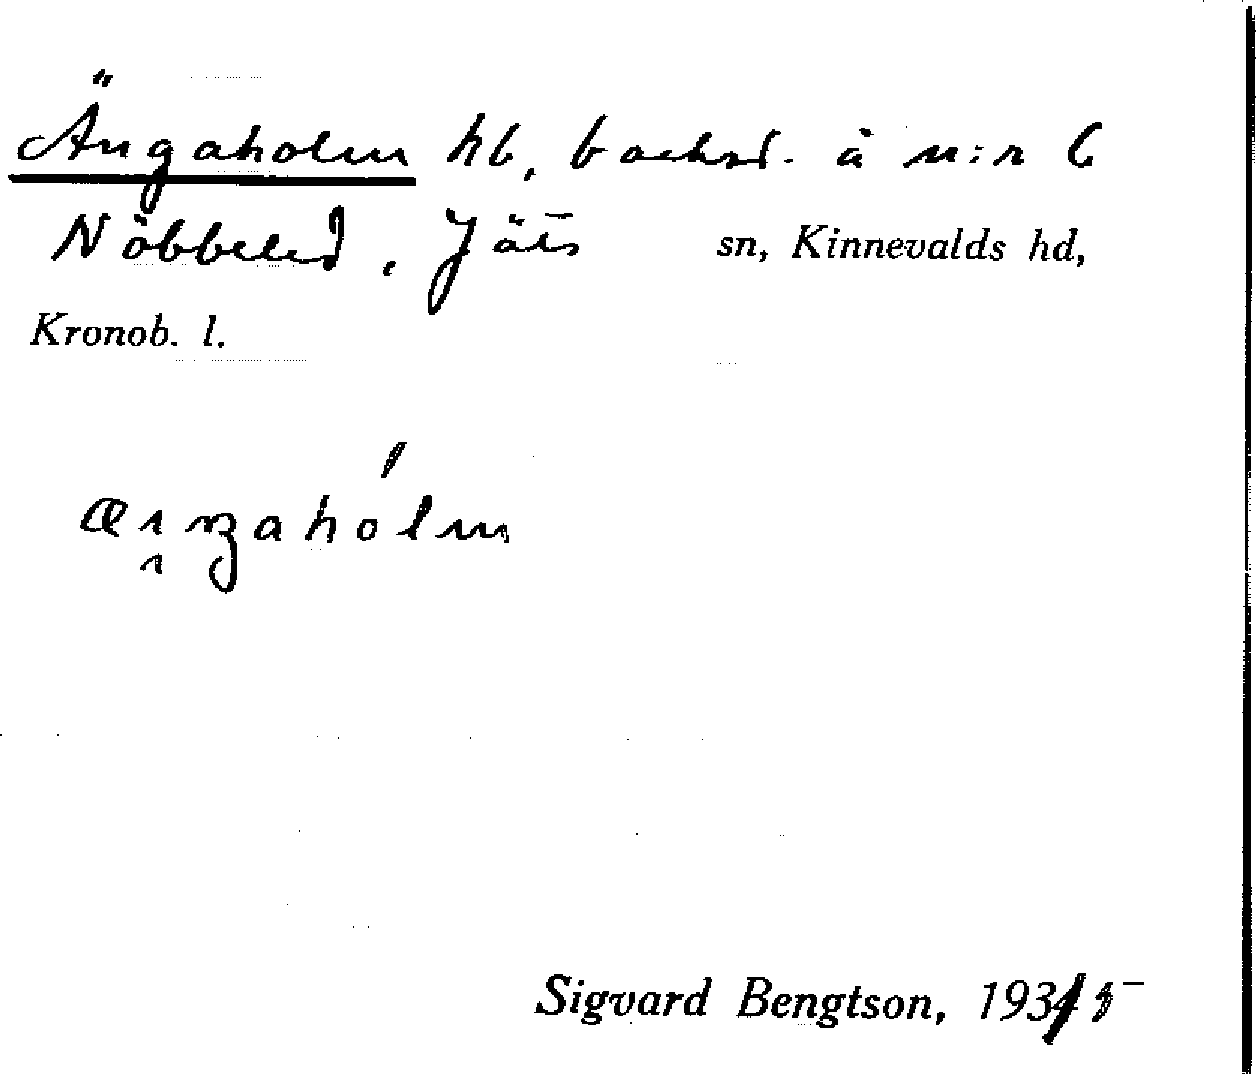 Ängaholm hb, backst. å n:r 6
Nöbbeled, Jäts sn, Kinnevalds hd,
Kronob. l.
Sigvard Bengtson, 1935